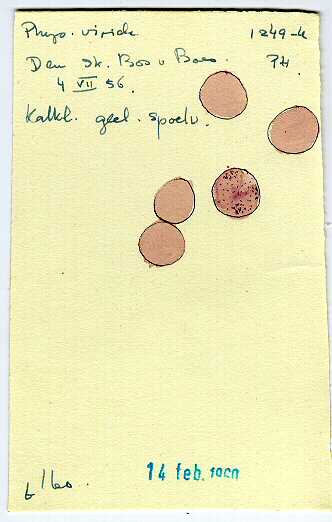 Phys. viride 1249-k
Den Sk. Bos v Baes. PH.
4 VII 56.
Kalkl. geel. spoelv.
14 feb. 1960